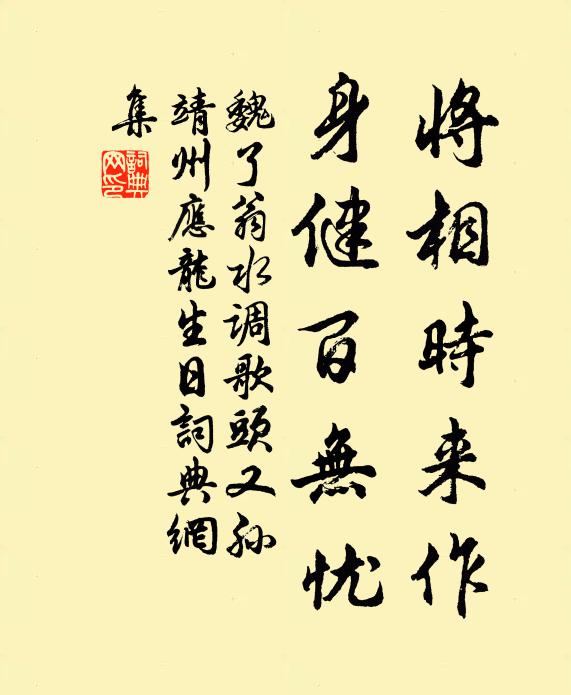 将相時来作
身健百無忧
魏了翁水调歌頭又孙
靖州應龍生日詞典網
集
詞典网印